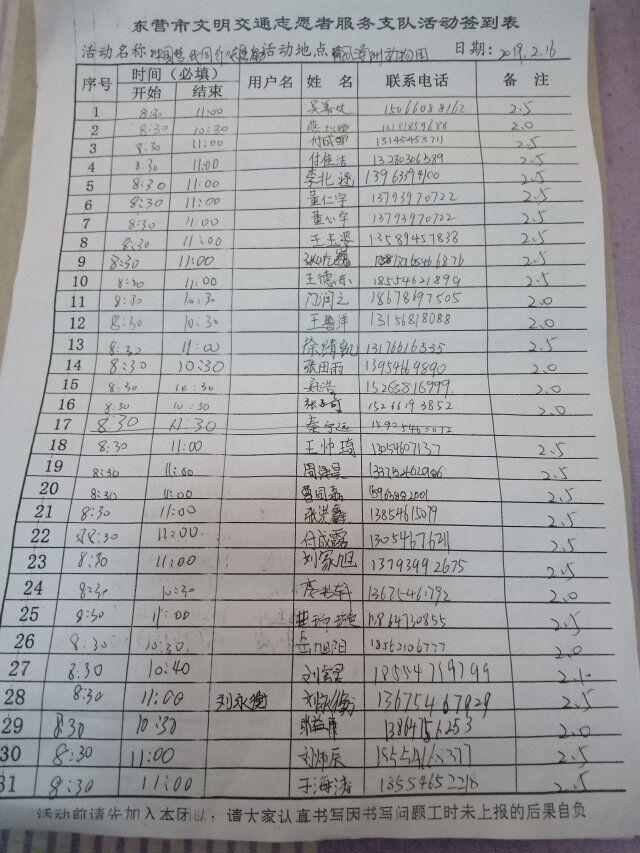 东营市文明交通志愿者服务支队活动签到表
活动名称 活动地点 日期：2019.2.16
序号 时间（必填） 用户名 姓 名 联系电话 备 注
开始 结束
1 8:30 11:00 15066088162 2.5
2 8:30 10:30 2.0
3 8:30 11:00 付成雷 15145453711 2.5
4 8:30 11:00 付佳洁 13280306589 2.5
5 8:30 11:00 李北涵 2.5
6 8:30 11:00 董仁宇 13793970722 2.5
7 8:30 11:00 董心宇 13793970722 2.5
8 8:30 11:00 王玉姿 13589457838 2.5
9 8:30 11:00 2.5
10 8:30 11:00 王德东 18554621899 2.5
11 8:30 10:30 门润之 18678197505 2.0
12 8:30 10:30 王鲁洋 13156818088 2.0
13 8:30 11:00 徐绪凯 13176616335 2.5
14 8:30 10:30 张田雨 13954669890 2.0
15 8:30 10:30 15263816999 2.0
16 8:30 10:30 15266193852 2.0
17 8:30 11:30 秦宁远
18 8:30 11:00 王帅琦 13054607137 2.5
19 8:30 11:00 2.5
20 8:30 11:00 2.5
21 8:30 11:00 张洪鑫 13854615079 2.5
22 8:30 11:00 付成露 13054676211 2.5
23 8:30 11:00 刘家旭 13793992675 2.5
24 8:30 10:30 13675461792 2.0
25 8:30 11:00 2.5
26 8:30 10:30 岳旭阳 18562106777 2.0
27 8:30 10:40 18554719799
28 8:30 11:00 刘永衡 13675467929 2.5
29 8:30 10:30 13864756253 2.0
30 8:30 11:00 刘炳辰 2.5
31 8:30 11:00 于海涛 18554652218 2.5
活动前请先加入本团队；请大家认真书写因书写问题工时未上报的后果自负